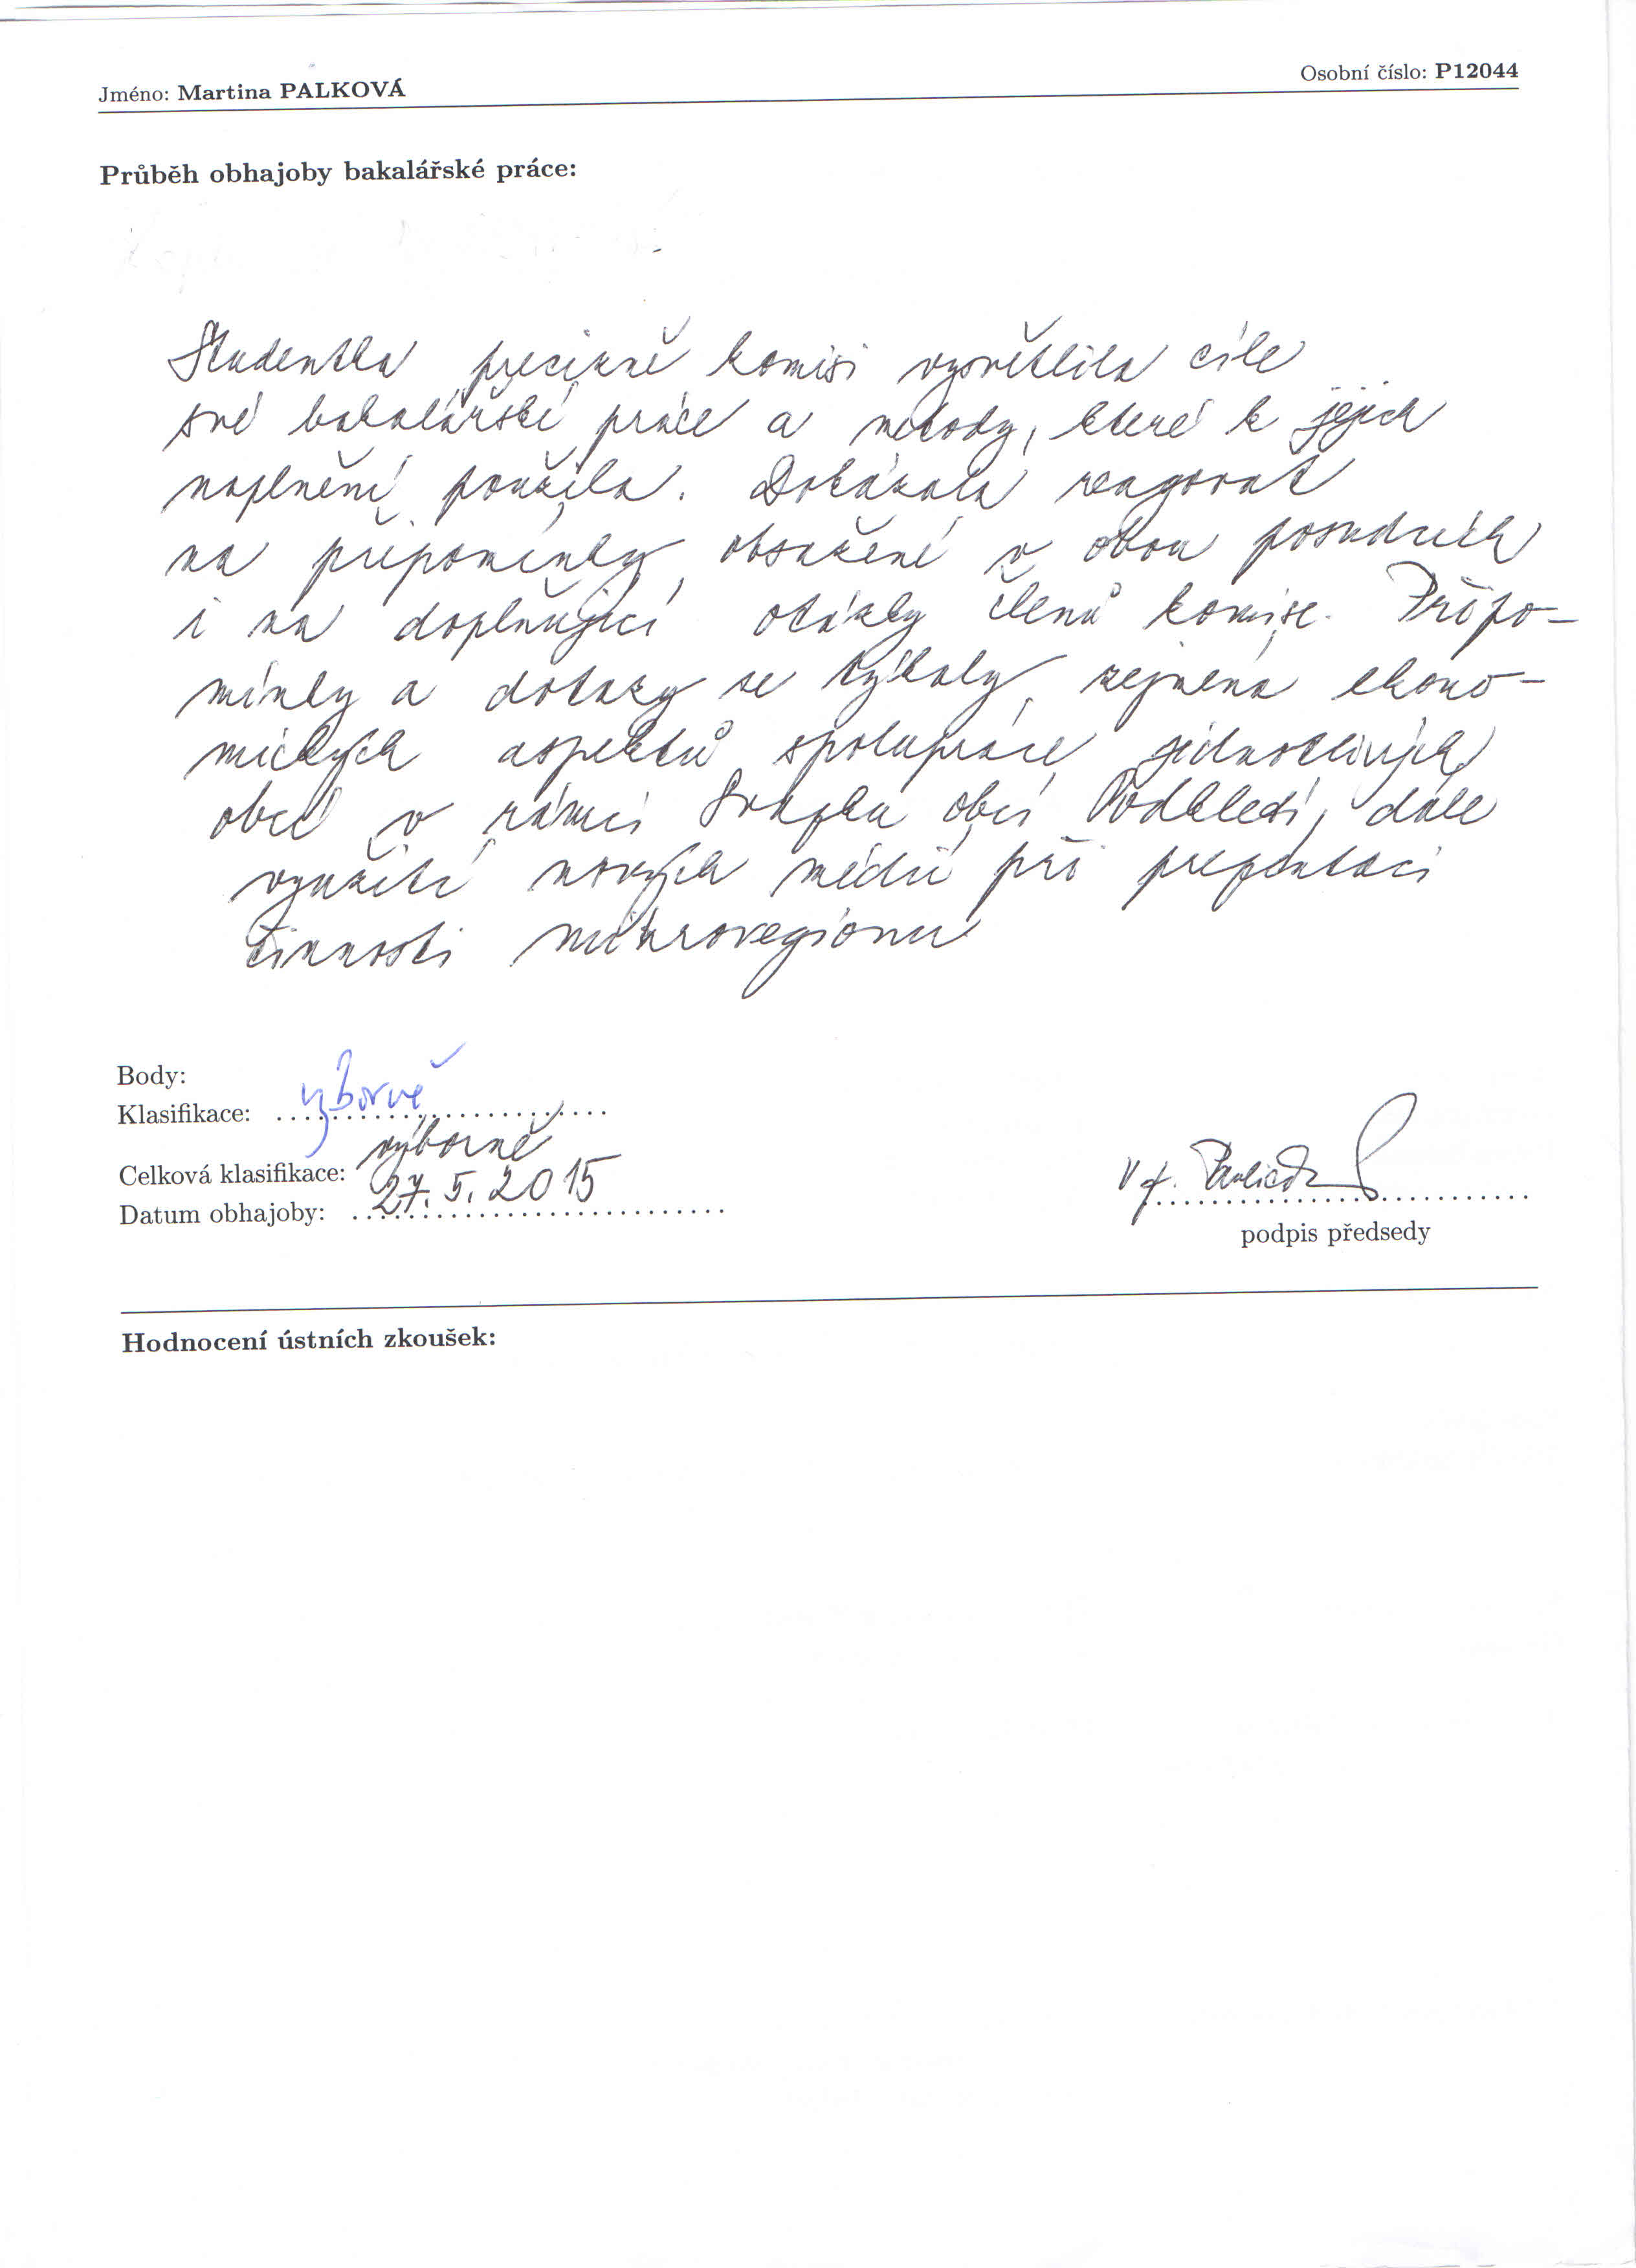 Jméno: Martina PALKOVÁ Osobní číslo: P12044
Průběh obhajoby bakalářské práce:
Studentka precizně komisi vysvětlila cíle
své bakalářské práce a metody, které k jejich
naplnění použila. Dokázala reagovat
na připomínky obsažené v obou posudcích
i na doplňující otázky členů komise. Připo-
mínky a dotazy se týkaly zejména ekono-
mických aspektů spolupráce jednotlivých
obcí v rámci Svazku obcí Podkletí, dále
využití nových médií při prezentaci
činnosti mikroregionu
Body:
Klasifikace: výborně
Celková klasifikace: výborně
Datum obhajoby: 27. 5. 2015
podpis předsedy
Hodnocení ústních zkoušek: